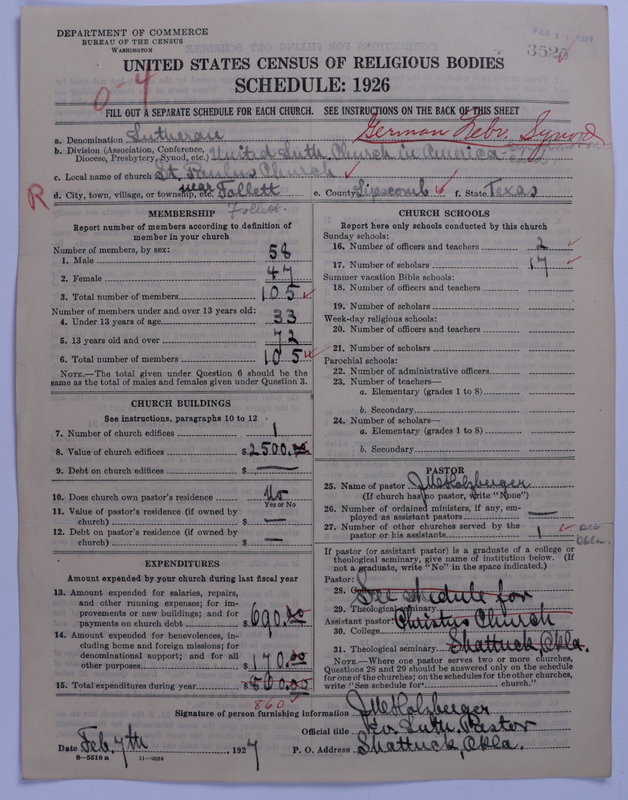 DEPARTMENT OF COMMERCE
BUREAU OF THE CENSUS
WASHINGTON
3525
UNITED STATES CENSUS OF RELIGIOUS BODIES
SCHEDULE: 1926
0-4
FILL OUT A SEPARATE SCHEDULE FOR EACH CHURCH. SEE INSTRUCTIONS ON THE BACK OF THIS SHEET
a. Denomination Lutheran
German Nebr. Synod
b. Division (Association, Conference, Diocese, Presbytery, Synod, etc.) United Luth. Church in America
c. Local name of church St. Paulus Church
R
d. City, town, village, or township, etc. near Follett e. County Lipscomb f. State Texas
Follett
MEMBERSHIP
Report number of members according to definition of member in your church
Number of members, by sex:
1. Male 58
2. Female 47
3. Total number of members 105
Number of members under and over 13 years old:
4. Under 13 years of age 33
5. 13 years old and over 72
6. Total number of members 105
NOTE.—The total given under Question 6 should be the same as the total of males and females given under Question 3.
CHURCH BUILDINGS
See instructions, paragraphs 10 to 12
7. Number of church edifices 1
8. Value of church edifices $2500.00
9. Debt on church edifices $ —
10. Does church own pastor's residence No
Yes or No
11. Value of pastor's residence (if owned by church) $ —
12. Debt on pastor's residence (if owned by church) $ —
EXPENDITURES
Amount expended by your church during last fiscal year
13. Amount expended for salaries, repairs, and other running expenses; for improvements or new buildings; and for payments on church debt $690.00
14. Amount expended for benevolences, including home and foreign missions; for denominational support; and for all other purposes $170.00
15. Total expenditures during year $860.00
860
CHURCH SCHOOLS
Report here only schools conducted by this church
Sunday schools:
16. Number of officers and teachers 2
17. Number of scholars 17
Summer vacation Bible schools:
18. Number of officers and teachers
19. Number of scholars
Week-day religious schools:
20. Number of officers and teachers
21. Number of scholars
Parochial schools:
22. Number of administrative officers
23. Number of teachers—
a. Elementary (grades 1 to 8)
b. Secondary
24. Number of scholars—
a. Elementary (grades 1 to 8)
b. Secondary
PASTOR
25. Name of pastor J M Holzberger
(If church has no pastor, write "None")
26. Number of ordained ministers, if any, employed as assistant pastors —
27. Number of other churches served by the pastor or his assistants 1
Okla.
If pastor (or assistant pastor) is a graduate of a college or theological seminary, give name of institution below. (If not a graduate, write "No" in the space indicated.)
Pastor:
28. See shedule for
29. Theological seminary
Assistant pastor: Christus Church
30. College
31. Theological seminary Shattuck, Okla.
NOTE.—Where one pastor serves two or more churches, Questions 28 and 29 should be answered only on the schedule for one of the churches; on the schedules for the other churches, write "See schedule for church."
Signature of person furnishing information J M Holzberger
Official title Ev. Luth. Pastor
Date Feb. 7th, 1927 P. O. Address Shattuck, Okla.
8—5518 a 11—9684